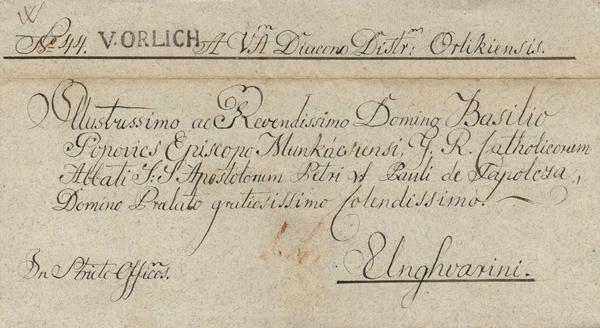 No 44. V. ORLICH A V. A. Diacono Distr: Orlikiensis.
Illustrissimo ac Reverendissimo Domino Basilio
Popovics Episcopo Munkácsiensi, G. R. Catholicorum
Abbati S. S. Apostolorum Petri et Pauli de Tapolcza,
Domino Prælato gratiosissimo Colendissimo.
In Stricto Officos. Unghvarini.